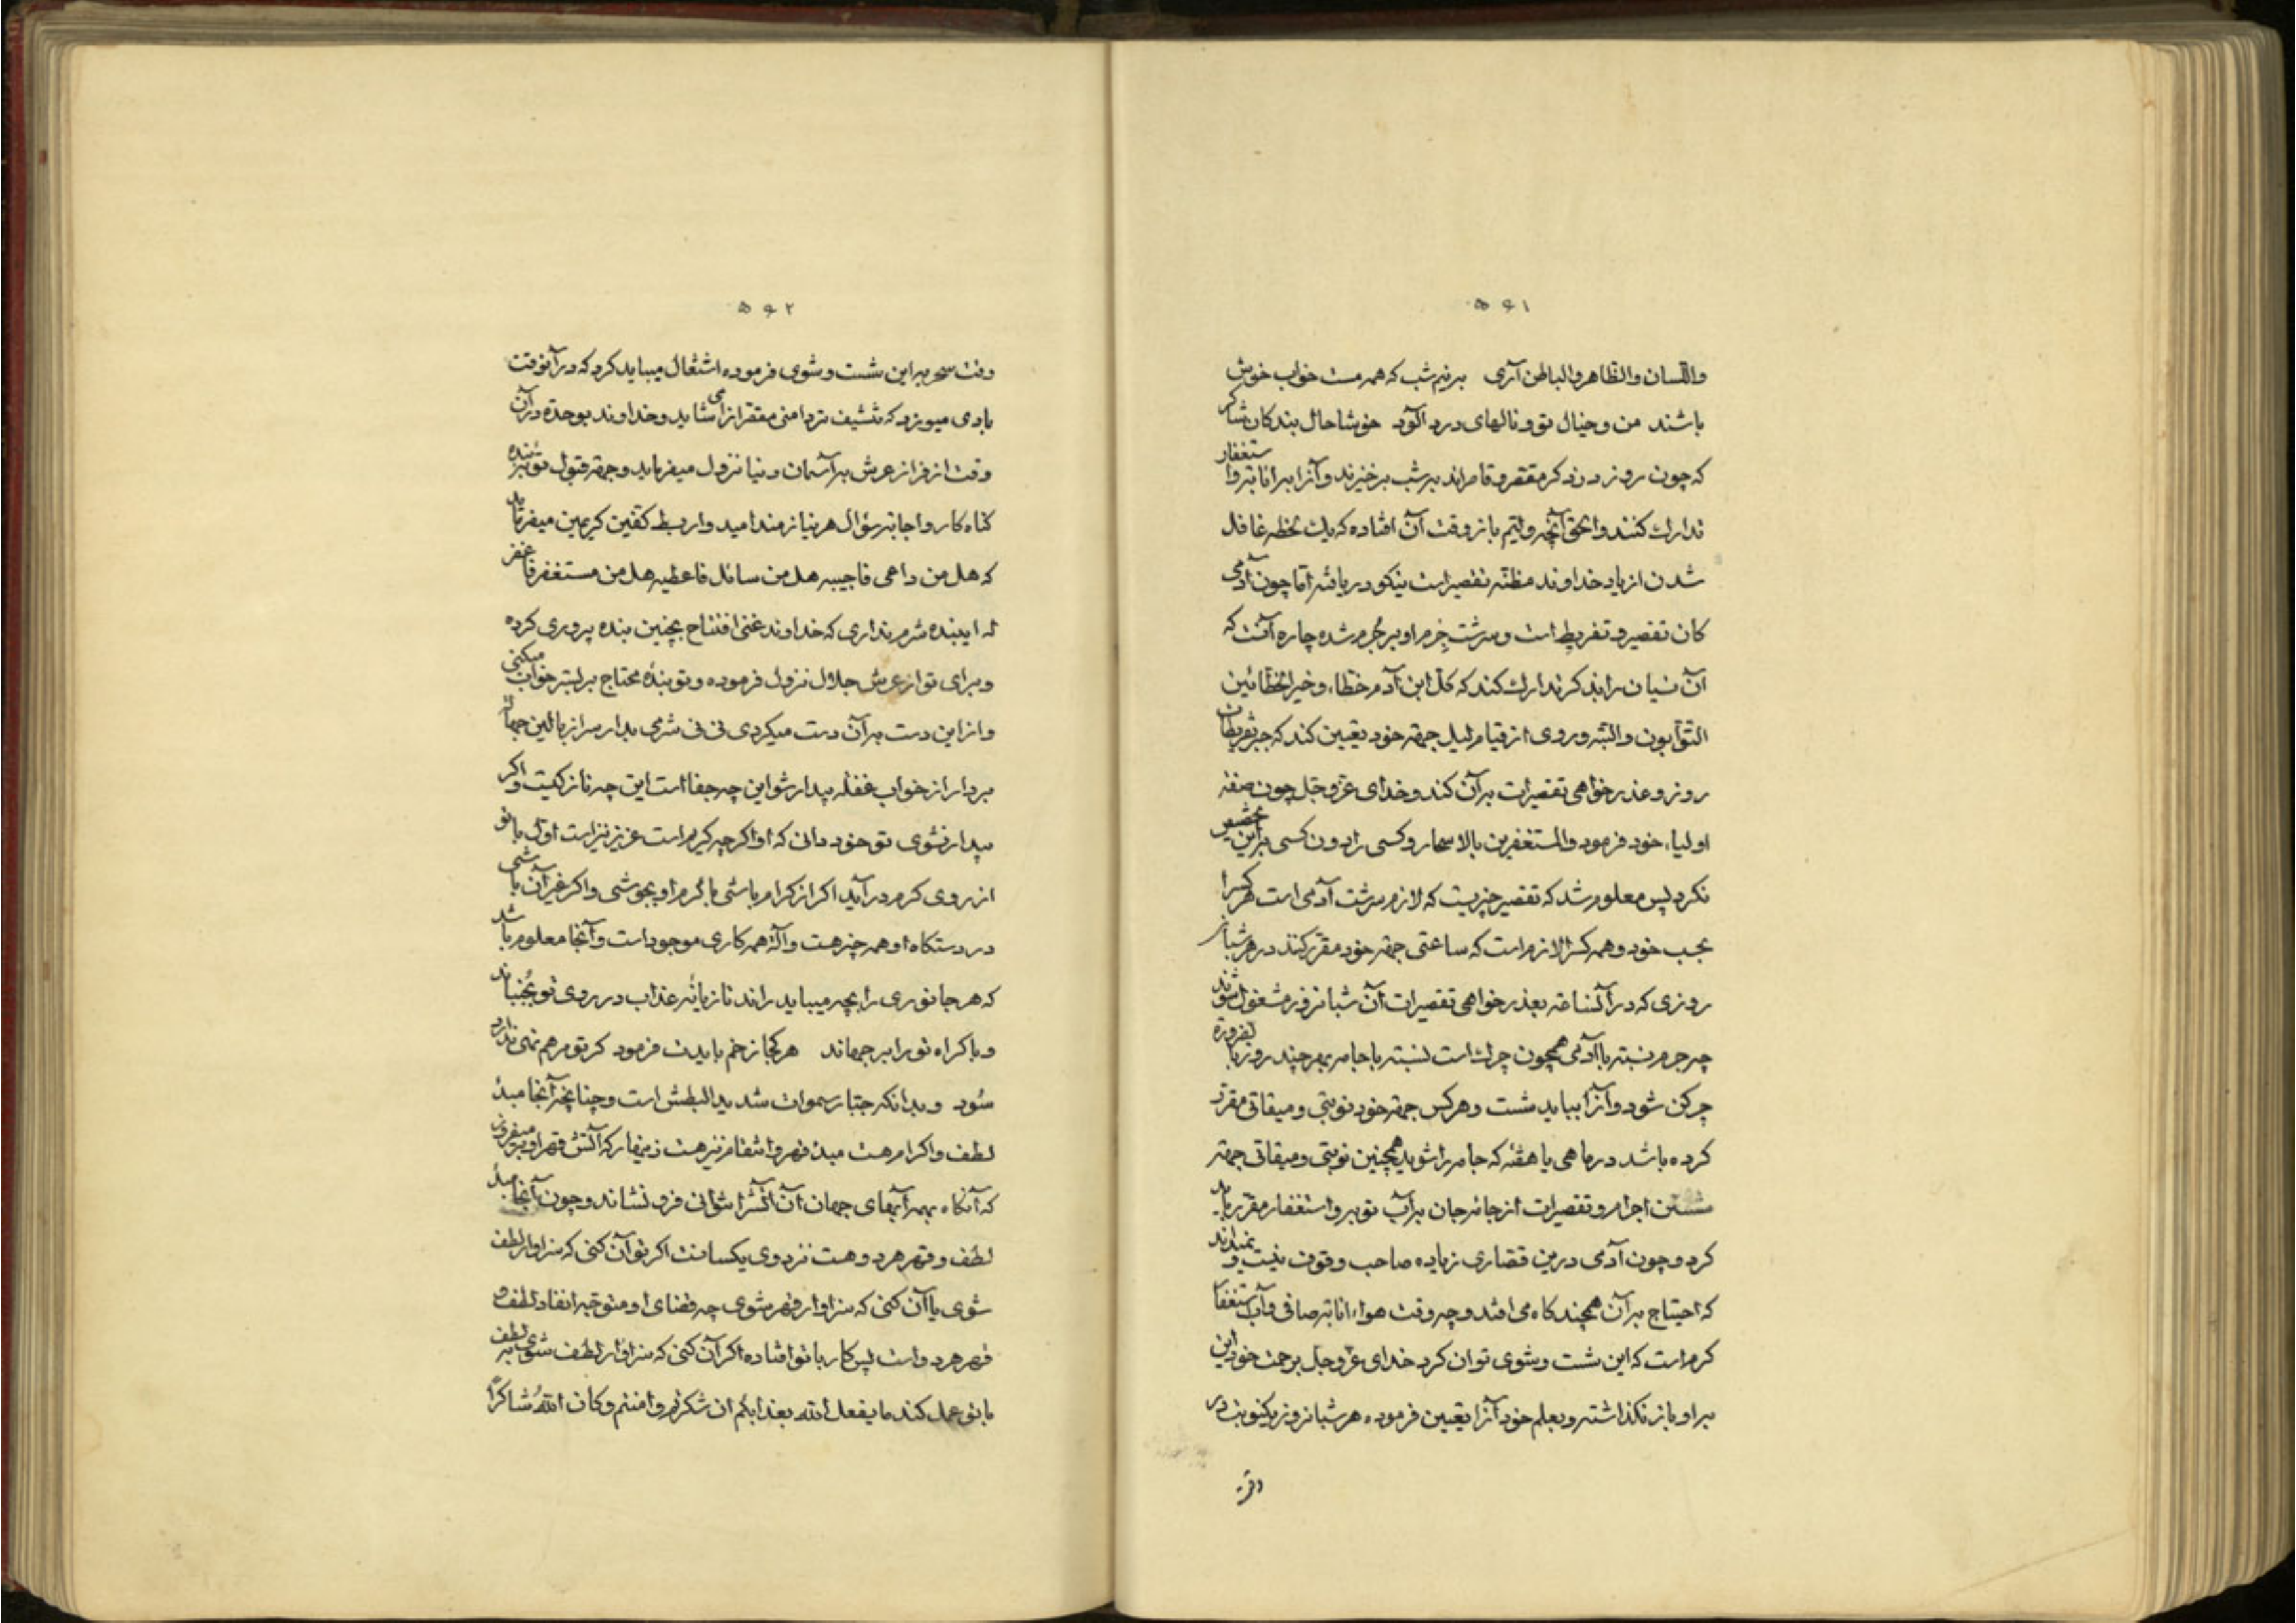 ۵۶۱
واللسان والظاهر والباطن آری بنیم شب که همه مست خواب خوش
باشند من و خیال تو و نالهای درد آلود خوشا حال بندگان شاکر
که چون روز در ذکر مقصر و قاصراند بشب برخیزند و آنرا به انابت و استغفار
تدارک کنند و الحق آنچه ولیم باز وقت آن افتاده که یک لحظه غافل
شدن از یاد خداوند مظنه تقصیر است نیکو دریافته اما چون آدمی
کان تقصیر و تفریط است و سرشت جرم او بر جرم شده چاره آنست که
آن نسیان را بذکر تدارک کند که کل ابن آدم خطاء و خیر الخطائین
التوابون والبته وردی از قیام لیل جهة خود تعیین کند که جبر تفریطات
روز و عذرخواهی تقصیرات بر آن کند و خدای عز و جل چون صفة
اولیاء خود فرمود والمستغفرین بالاسحار و کسی را دون کسی براین مخصوص
نکرد پس معلوم شد که تقصیر چیزیست که لازم سرشت آدمی است هر کسرا
بحسب خود و همه کسرا لازم است که ساعتی جهة خود مقرر کنند در هر شبانه
روزی که در آنساعة بعذرخواهی تقصیرات آن شبانروز مشغول شوند
چه جرم نسبته باآدمی همچون چرک است نسبته باجامه بهرچند روز بالضرورة
چرکن شود و آنرا بباید شست و هرکس جهة خود نوبتی و میقاتی مقرر
کرده باشد در ماهی یا هفته که جامه را شوید همچنین نوبتی و میقاتی جهة
شستن اجرام و تقصیرات از جامه جان بر آب توبه و استغفار مقرر باید
کرد و چون آدمی درین قصاری زیاده صاحب وقوف نیست و نمیداند
که احتیاج بر آن بهچند گاه می افتد و چه وقت هواء انابة صافی و آب استغفار
گرم است که این شست و شوی توان کرد خدای عز و جل برحمت خود این
بر او باز نگذاشته و بعلم خود آنرا تعیین فرموده هر شبانروز یکنوبت در
وقت
۵۶۲
وقت سحر براین شست و شوی فرموده اشتغال میباید کرد که در آنوقت
بادی میوزد که تنشیف تردامنی مقصرانرا می شاید و خداوند بوحدة در آن
وقت از فراز عرش بر آسمان دنیا نزول میفرماید و جهة قبول توبه بنده
گناه کار و اجابة سؤال هر نیازمند امیدوار بسط کفین کریمین میفرماید
که هل من داعی فاجیبه هل من سائل فاعطیه هل من مستغفر فاغفر
له ای بنده شرم نداری که خداوند غنی افتتاح بچنین بنده پروری کرده
و برای تو از عرش جلال نزول فرموده و تو بندهٔ محتاج بر بستر خواب میکنی
و از این دست بر آن دست میکردی نی نی شرمی بدار سر از بالین جهالة
بردار از خواب غفلة بیدار شو این چه جفا است این چه ناز کیست و اگر
بیدار نشوی تو خود دان که او اگرچه کریم است عزیز نیز است اول باتو
از روی کرم درآید اگر از کرام باشی باکرم او بجوشی و اگر غیر آن باشی
در دستگاه او همه چیز هست و آلة همه کاری موجود است و آنجا معلوم باشد
که هر جانوری را بچه میباید راند تازیانهٔ عذاب در روی تو بجنباند
و باکراه تو را برجهاند هرکجا زخم بایدت فرمود گر تو مرهم نهی ندارد
سود و بدانکه جبار سموات شدید البطش است و چنانچه آنجا مبدأ
لطف و اکرام هست مبدأ قهر و انتقام نیز هست زینهار که آتش قهر او برمیفروز
که آنگاه بهمه آبهای جهان آن آتش را نتوانی فرو نشاند و چون آنجا مبدأ
لطف و قهر هردو هست نزد وی یکسانست اگر تو آن کنی که سزاوار لطف
شوی یا آن کنی که سزاوار قهر شوی چه قضای او متوجه انفاد لطف و
قهر هردو است پس کار باتو افتاده اگر آن کنی که سزاوار لطف شوی بر لطف
باتو عمل کند ما یفعل الله بعذابکم ان شکرتم و امنتم و کان اللهُ شاکراً